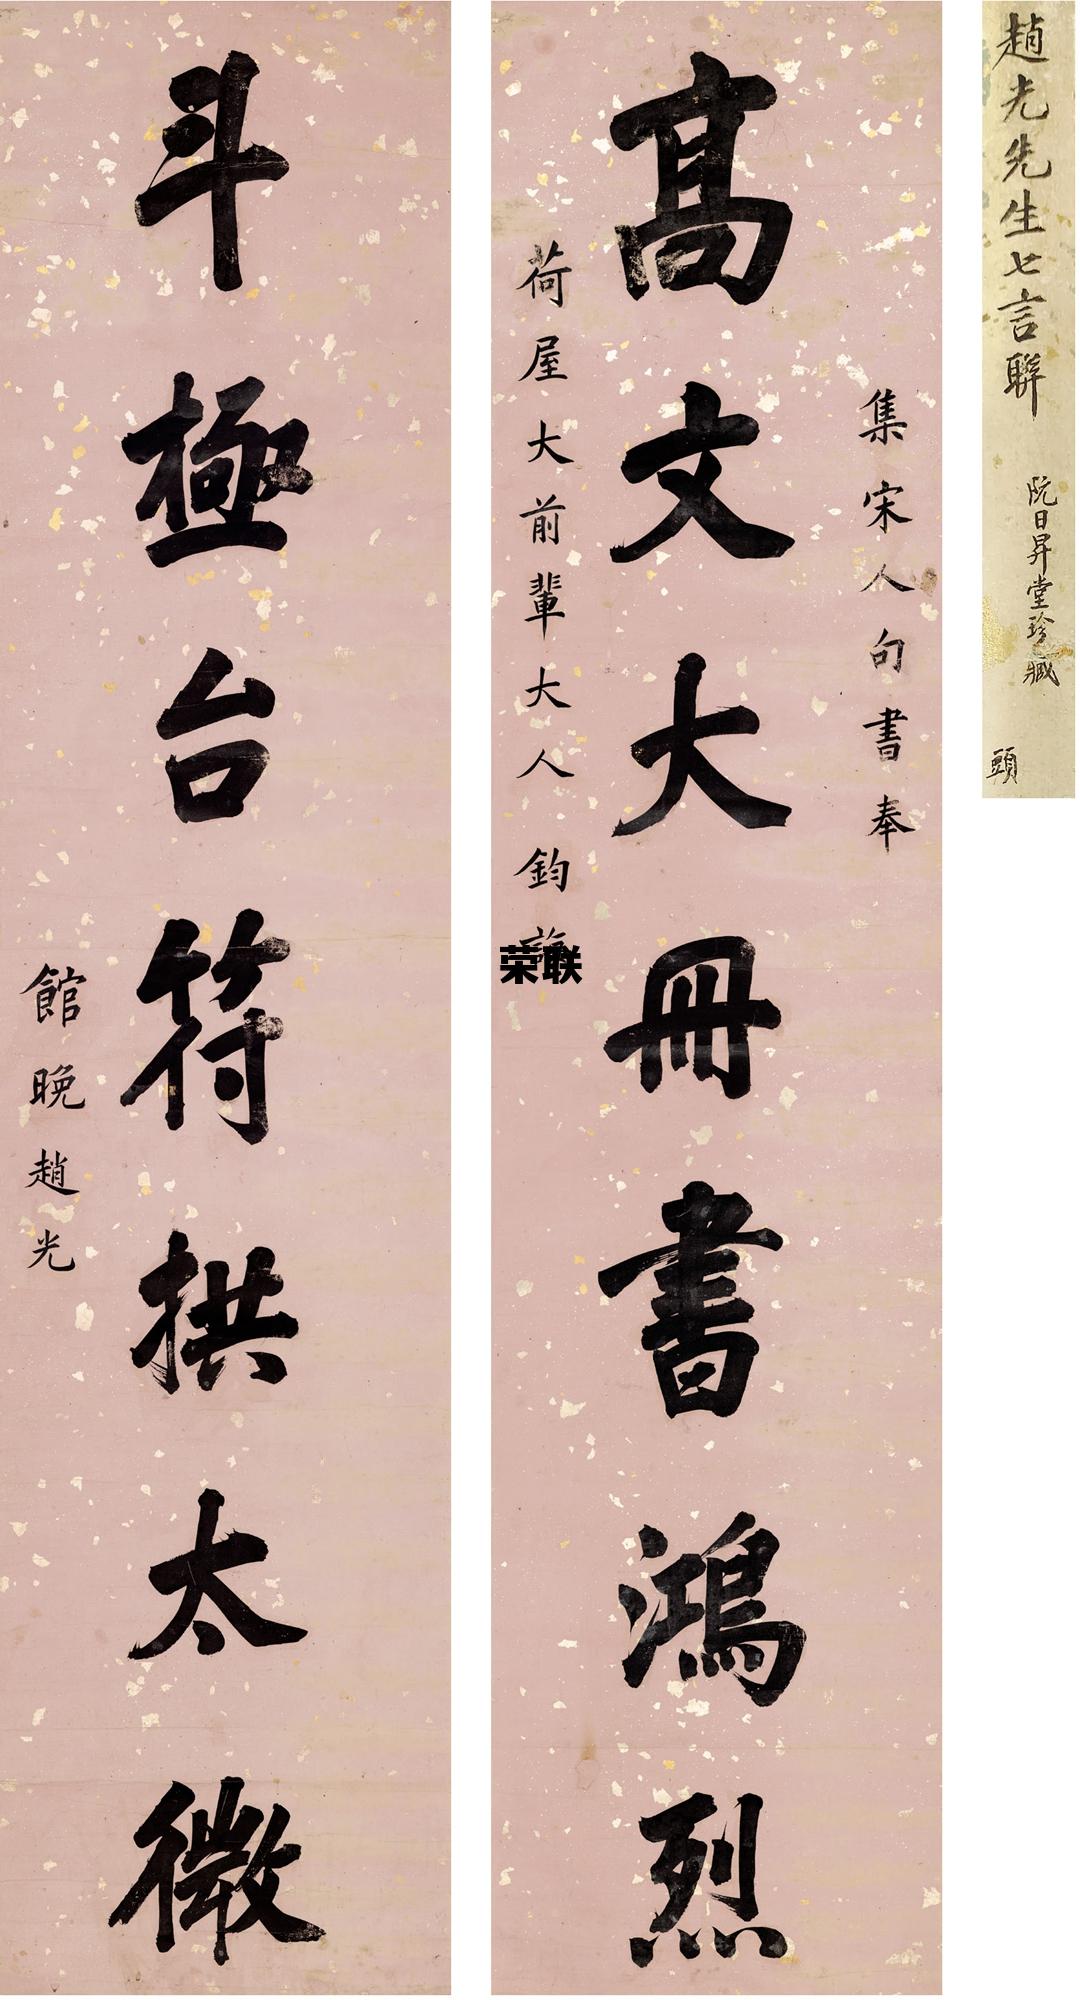 趙光先生七言聯
阮日昇堂珍藏
頭
集宋人句書奉
髙文大冊書鴻烈
荷屋大前輩大人鈞
荣联
斗極台符拱太微
館晚趙光